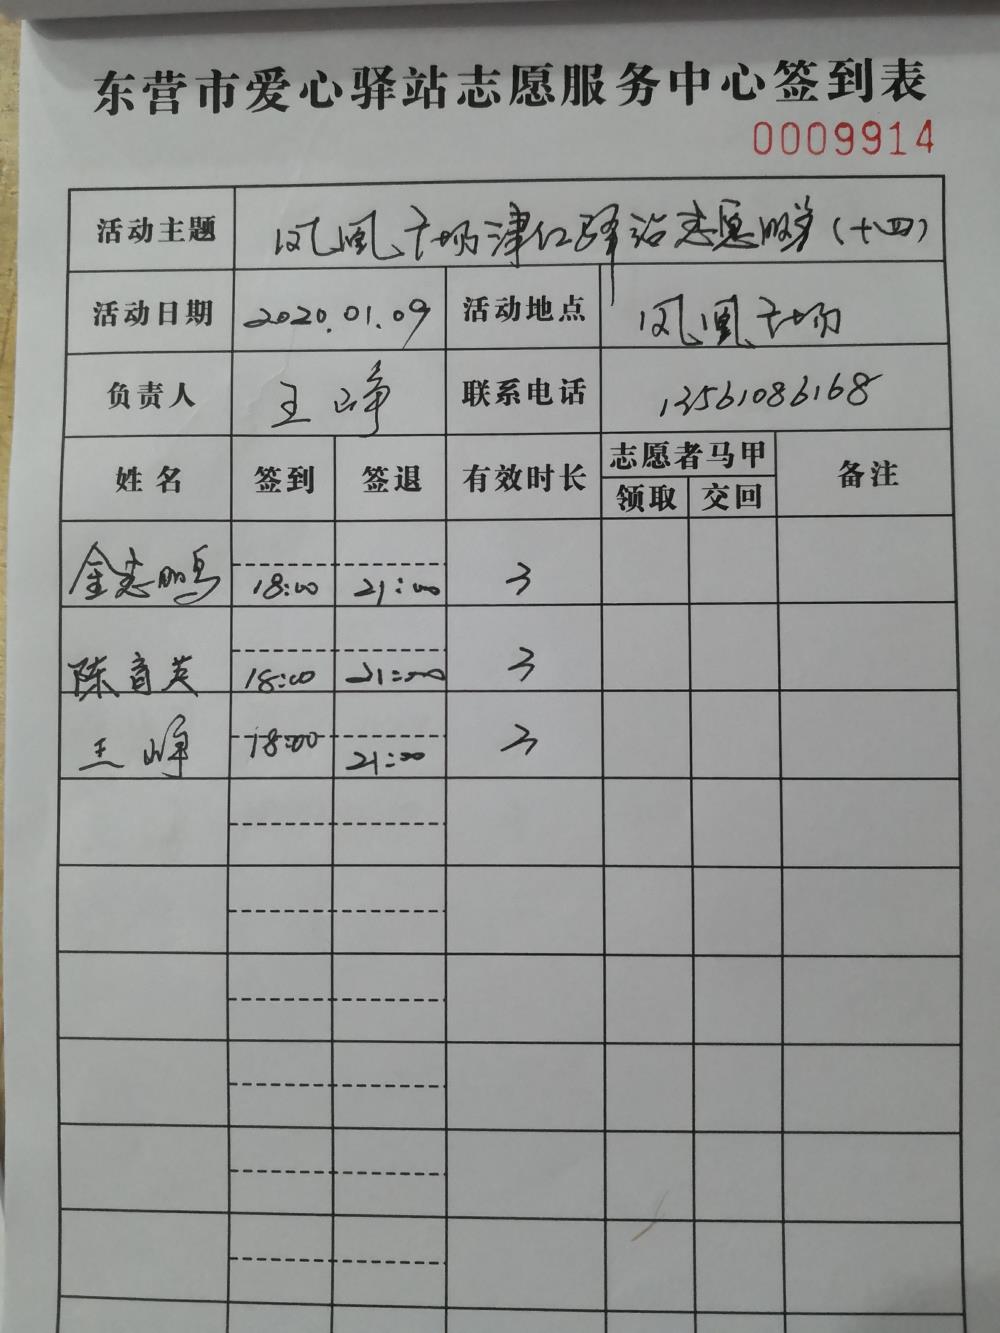 东营市爱心驿站志愿服务中心签到表
0009914
活动主题 凤凰广场津红驿站志愿服务(十四)
活动日期 2020.01.09 活动地点 凤凰广场
负责人 王峥 联系电话 13561086168
姓名 签到 签退 有效时长 志愿者马甲 备注
领取 交回
金志鹏 18:00 21:00 3
陈育英 18:00 21:00 3
王峥 18:00 21:00 3